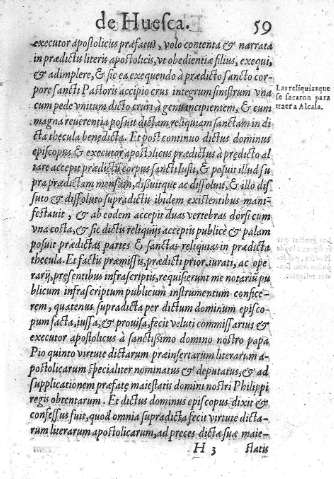 de Huesca. 59
executor apostolicus præfatus, volo contenta & narrata
in prædictis literis apostolicis, vt obedientiæ filius, exequi,
& adimplere, & sic ea exequendo à prædicto sancto cor-
pore sancti Pastoris accipio crus integrum sinistrum vna
cum pede vnitum dicto cruri à genu incipientem, & cum
magna reuerentia posuit dictam reliquiam sanctam in di-
cta thecula benedicta. Et post continuo dictus dominus
episcopus & executor apostolicus prædictus à prædicto al
tare accepit prædictū corpus sancti Iusti, & posuit illud su
pra prædictam mensam, disuitque ac dissoluit, & illo dis-
suto & dissoluto supradictis ibidem existentibus mani-
festauit, & ab eodem accepit duas vertebras dorsi cum
vna costa, & sic dictis reliquijs acceptis publicè & palam
posuit prædictas partes & sanctas reliquias in prædicta
thecula. Et factis præmissis, prædicti prior, iurati, ac ope
rarij, præsentibus infrascriptis, requisierunt me notariū pu
blicum infrascriptum publicum instrumentum confice-
rem, quatenus supradicta per dictum dominum episco-
pum facta, iussa, & prouisa, fecit veluti commissarius &
executor apostolicus à sanctissimo domino nostro papa
Pio quinto virtute dictarum præinsertarum literarum a-
postolicarum specialiter nominatus & deputatus, & ad
supplicationem præfatæ maiestatis domini nostri Philippi
regis obtentarum. Et dictus dominus episcopus dixit &
confessus fuit, quod omnia supradicta fecit virtute dicta-
rum literarum apostolicarum, ad preces dictæ suæ maie-
H 3 statis
Las reliquias que
se sacaron para
traer a Alcala.